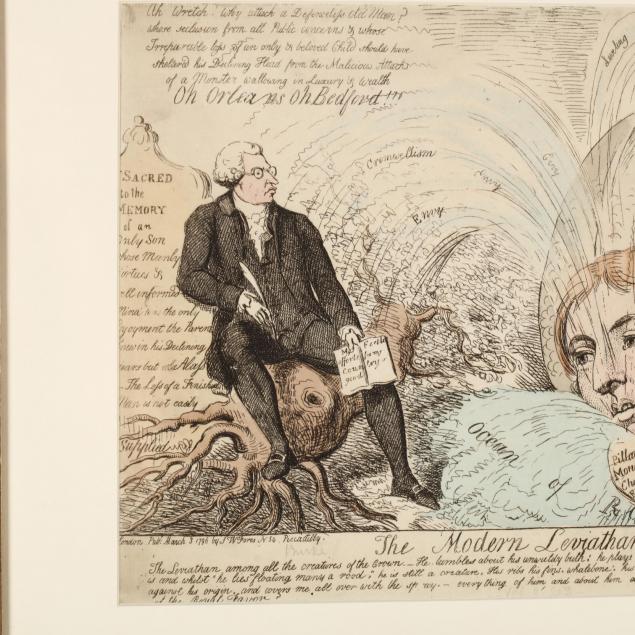 Ah Wretch! Why attack a Defenceless Old Man?
whose seclusion from all Public concerns & whose
Irreparable loss of an only & beloved Child should have
sheltered his Declining Head from the Malicious Attack
of a Monster wallowing in Luxury & Wealth
Oh Orleans Oh Bedford !!!
Leveling
Cromwellism
Envy
Envy
Envy
SACRED
to the
MEMORY
of an
Only Son
whose Manly
Virtues &
well informed
Mind was the only
Enjoyment the Parent
knew in his Declining
years but Alass
The Loss of a Finished
Man is not easily
Supplied
My
Efforts
for my
Country
good
Ocean
of
Pillar
London Pub. March 3 1796 by S W Fores N. 50 Piccadilly.
Burke
The Modern Leviathan
The Leviathan among all the creatures of the Crown - He tumbles about his unwieldy bulk; he plays
is and whilst he lies floating many a rood; he is still a creature. His ribs his fins, whalebone; his
against his origin, and covers me all over with the spray. - every thing of him and about him